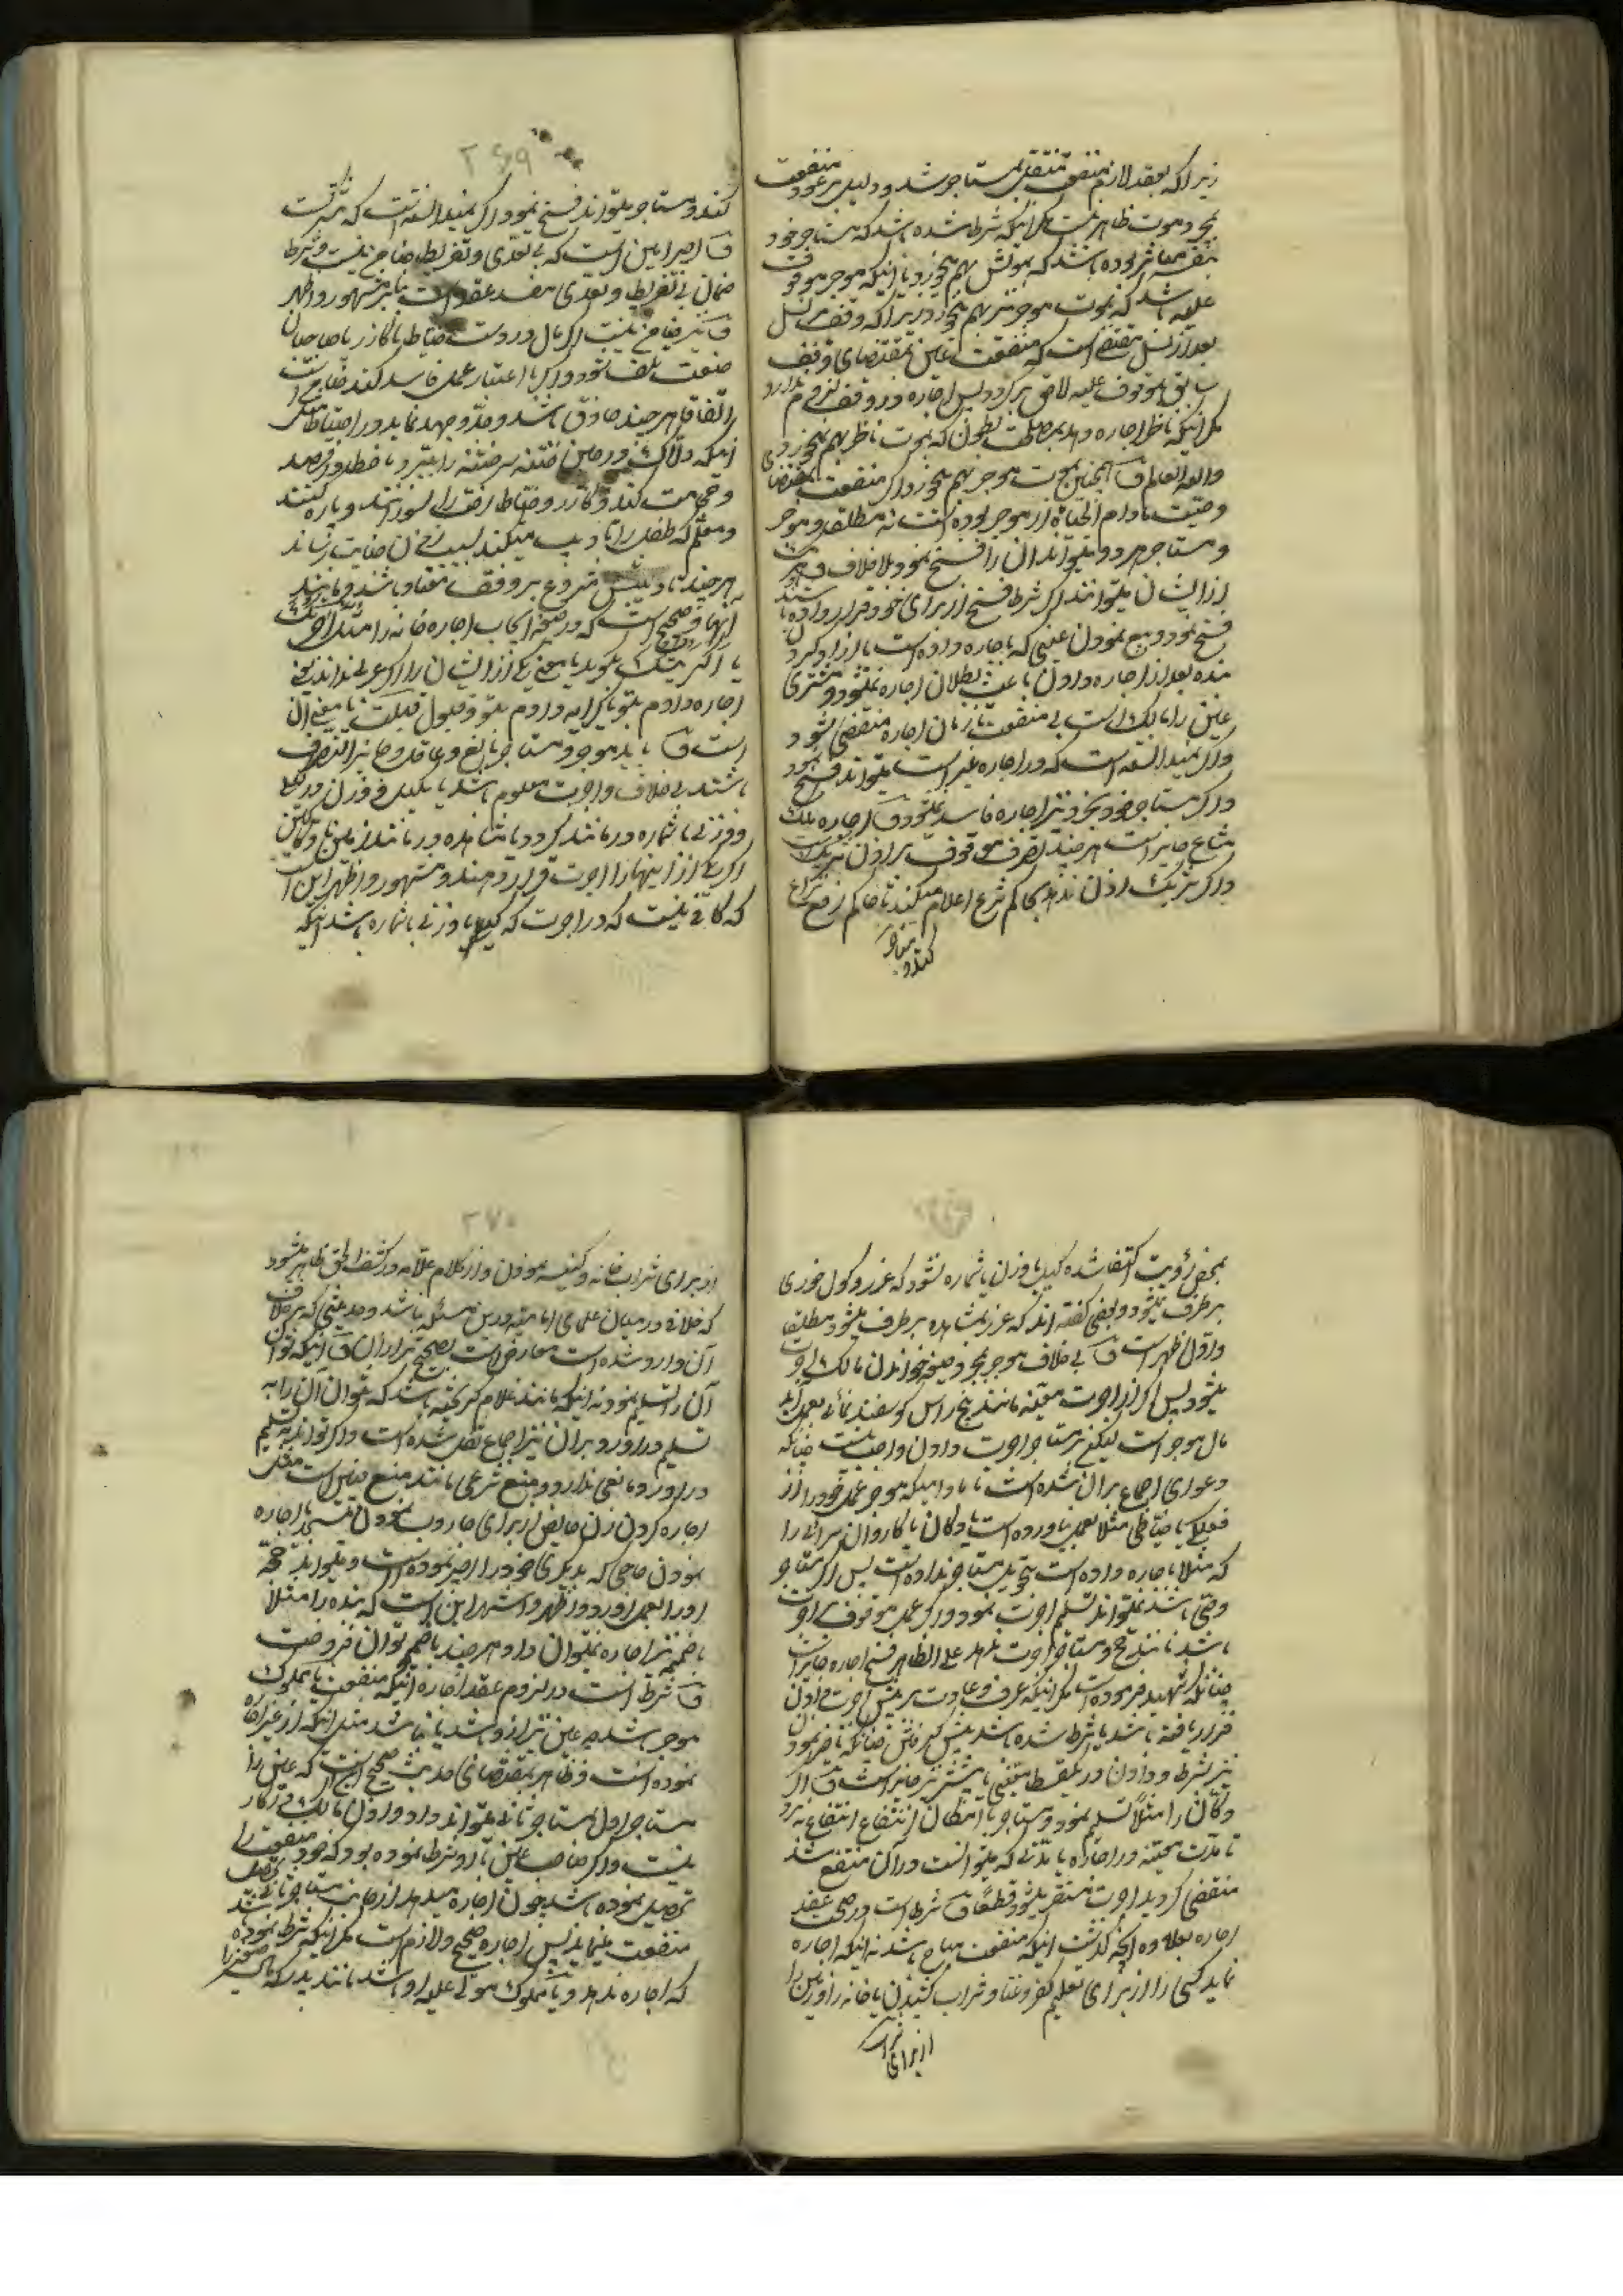 زیرا که بعقد لازم منفعت منتقل بمستاجر شد و دلیل بر عود منفعت
بموت ظاهر نیست مگر اینکه شرط شده باشد که مستاجر خود
بنفسه مباشر بوده باشد که بموتش بهم میخورد یا اینکه موجر موقوف
علیه باشد که بموت موجر نیز بهم میخورد زیرا که وقف بر نسل
بعد از نسل مقتضی است که منفعت عین بمقتضای وقف
بموقوف علیه لاحق برگردد پس اجاره در وقف لزومی ندارد
مگر اینکه ناظر اجاره دهد بمصلحت بطون که بموت ناظر بهم نمیخورد
والله العالم ف همچنین بموت موجر بهم میخورد اگر منفعت بمقتضای
وصیت مادام الحیاة از موجر بوده است نه مطلقا و موجر
و مستاجر هر دو میتوانند آن را فسخ نمود بلا خلاف
از ایشان میتوانند اگر شرط فسخ از برای خود قرار داده باشند
فسخ نمود و بیع نمودن عینی که باجاره داده است یا آزاد کردن
بنده بعد از اجاره دادن باعث بطلان اجاره نمیشود و مشتری
عین را مالک است بی منفعت تا زمان اجاره منقضی شود
و اگر نمیدانسته است که در اجاره غیر است میتواند فسخ نمود
و اگر مستاجر خود بخرد نیز اجاره فاسد نمیشود ف اجاره ملک
مشاع جایز است هر چند تصرف موقوف بر اذن شریک است
و اگر شریک اذن ندهد بحاکم شرع اعلام میکند تا حاکم رفع نزاع
کند و مستاجر
۲۶۹
کند و مستاجر میتواند فسخ نمود اگر نمیدانسته است که شراکت
ف اجیر امین است که بی تعدی و تفریط ضامن نیست و شرط
ضمان بی تفریط و تعدی مفسد عقد است بنابر مشهور و اظهر
ف نیز ضامن نیست اگر مال در دست خیاط یا گازر یا صاحبان
صنعت تلف شود و اگر باعتبار عمل فاسد کند ضامن است
اتفاقا هر چند حاذق باشد و جد و جهد نماید در احتیاط مثل
اینکه دلاک در حین ختنه سر ختنه را ببرد یا خطا در فصد
و حجامت کند و گازر و خیاط رخت را بسوزانند و پاره کنند
و معلم که طفل را تادیب میکند بسبب زدن جنایت رساند
هر چند تادیبش مشروع بر وفق معتاد باشد
آنها ف صحیح است که در صیغه ایجاب اجاره خانه را مثلا آجرتک
یا اکریتک بگوید یا معنی یکی از ایشان را اگر عربی نداند یعنی
اجاره دادم بتو یا کرایه دادم بتو و قبول قبلت یا معنی آن
است ف باید موجر و مستاجر بالغ و عاقل و جایز التصرف
باشند بی خلاف و اجرت معلوم باشد بکیل و وزن در کیلی
و وزنی یا شماره در مانند گردو یا مشاهده در مانند زمین
اگر یکی از اینها را اجرت قرار دهند و مشهور و اظهر این است
که کافی نیست که در اجرت که کیلی یا وزنی یا شماره باشد اینکه
بمحض رؤیت اکتفا شده کیل یا وزن یا شماره نشود که غرر و گول خوری
برطرف میشود و بعضی گفته اند که غرر بمشاهده برطرف میشود مطلقا
و اول اظهر است ف بی خلاف موجر بمجرد صیغه خواندن مالک اجرت
میشود پس اگر از اجرت معینه مانند پنج راس گوسفند نمائی بعمل آید
مال موجر است لیکن بر مستاجر اجرت دادن واجب نیست چنانکه
دعوای اجماع بر آن شده است مادامیکه موجر عمل خود را از
فعلگی یا خیاطی مثلا بعمل نیاورده است یا دکان یا کاروان سرائی را
که مثلا باجاره داده است تحویل مستاجر نداده است پس اگر مستاجر
وصی باشد نمیتواند تسلیم اجرت نمود و اگر عمل موقوف بر اجرت
باشد مانند حج و مستاجر اجرت ندهد علی الظاهر فسخ اجاره جایز است
چنانکه شهید فرموده است مگر اینکه عرف و عادت بر پیش اجرت دادن
قرار یافته باشد یا شرط شده باشد پیش گرفتن چنانکه تاخیر نمودن
نیز بشرط و دادن در قسط معینی یا بیشتر نیز جایز است ف اگر
دکان را مثلا تسلیم نمود و مستاجر با امکان انتفاع انتفاع نبرد
تا مدت معینه در اجاره یا مدتی که میتوانست در آن منتفع شد
منقضی گردید اجرت مستقر میشود قطعا ف شرط است در صحت عقد
اجاره بعلاوه آنچه گذشت اینکه منفعت مباح باشد نه اینکه اجاره
نماید کسی را از برای تعلیم کفر و غنا و شراب کشیدن یا خانه را
از برای شراب
۲۷۰
از برای شرابخانه و کنیسه نمودن و از کلام علامه در کشف الحق ظاهر میشود
که خلافی در میان علمای امامیه درین مسئله نباشد و حدیثی که برخلاف
آن وارد شده است معارض است بصحیح تر از آن ف اینکه توان
آن را تسلیم نمود نه اینکه مانند غلام گریخته باشد که نتوان آن را به
تسلیم درآورد و بر آن نیز اجماع نقل شده است و اگر تواند به تسلیم
درآورد و مانعی ندارد و منع شرعی مانند منع حسی است مثل
اجاره کردن زن حایض از برای جاروب نمودن مسجد یا اجاره
نمودن حاجی که بدیگری خود را اجیر نموده است و نمیتواند حج
او را بعمل آورد و اظهر و اشهر این است که بنده را مثلا
با ضمیمه نیز اجاره نمیتوان داد هر چند با ضمیمه توان فروخت
ف شرط است در لزوم عقد اجاره اینکه منفعت مملوک
موجر باشد چه عین نیز از او باشد یا نباشد مثل اینکه از غیر اجاره
نموده است و ظاهر بمقتضای حدیث صحیح این است که عین را
مستاجر اول بمستاجر ثانی میتواند داد و اذن مالک در کار
نیست و اگر صاحب عین با او شرط نموده بود که خود منفعت را
تحصیل نموده باشد چون اجاره میدهد از جانب مستاجر ثانی
منفعت مینماید پس اجاره صحیح و لازم است مگر اینکه شرط نموده
که اجاره ندهد و یا مملوک مولی علیه او باشد مانند پدر که مال صغیر را